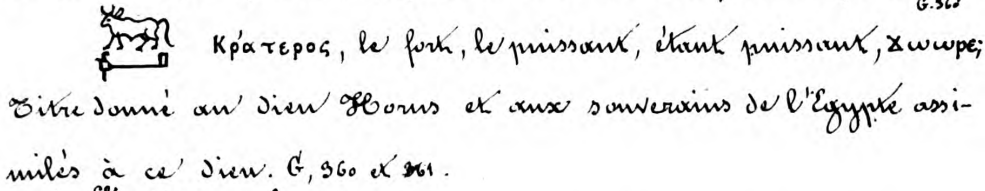 G. 360
Κράτερος, le fort, le puissant, étant puissant, ϫⲱⲱⲣⲉ;
Titre donné au dieu Horus et aux souverains de l'Égypte assi-
milés à ce dieu. G, 360 et 361.